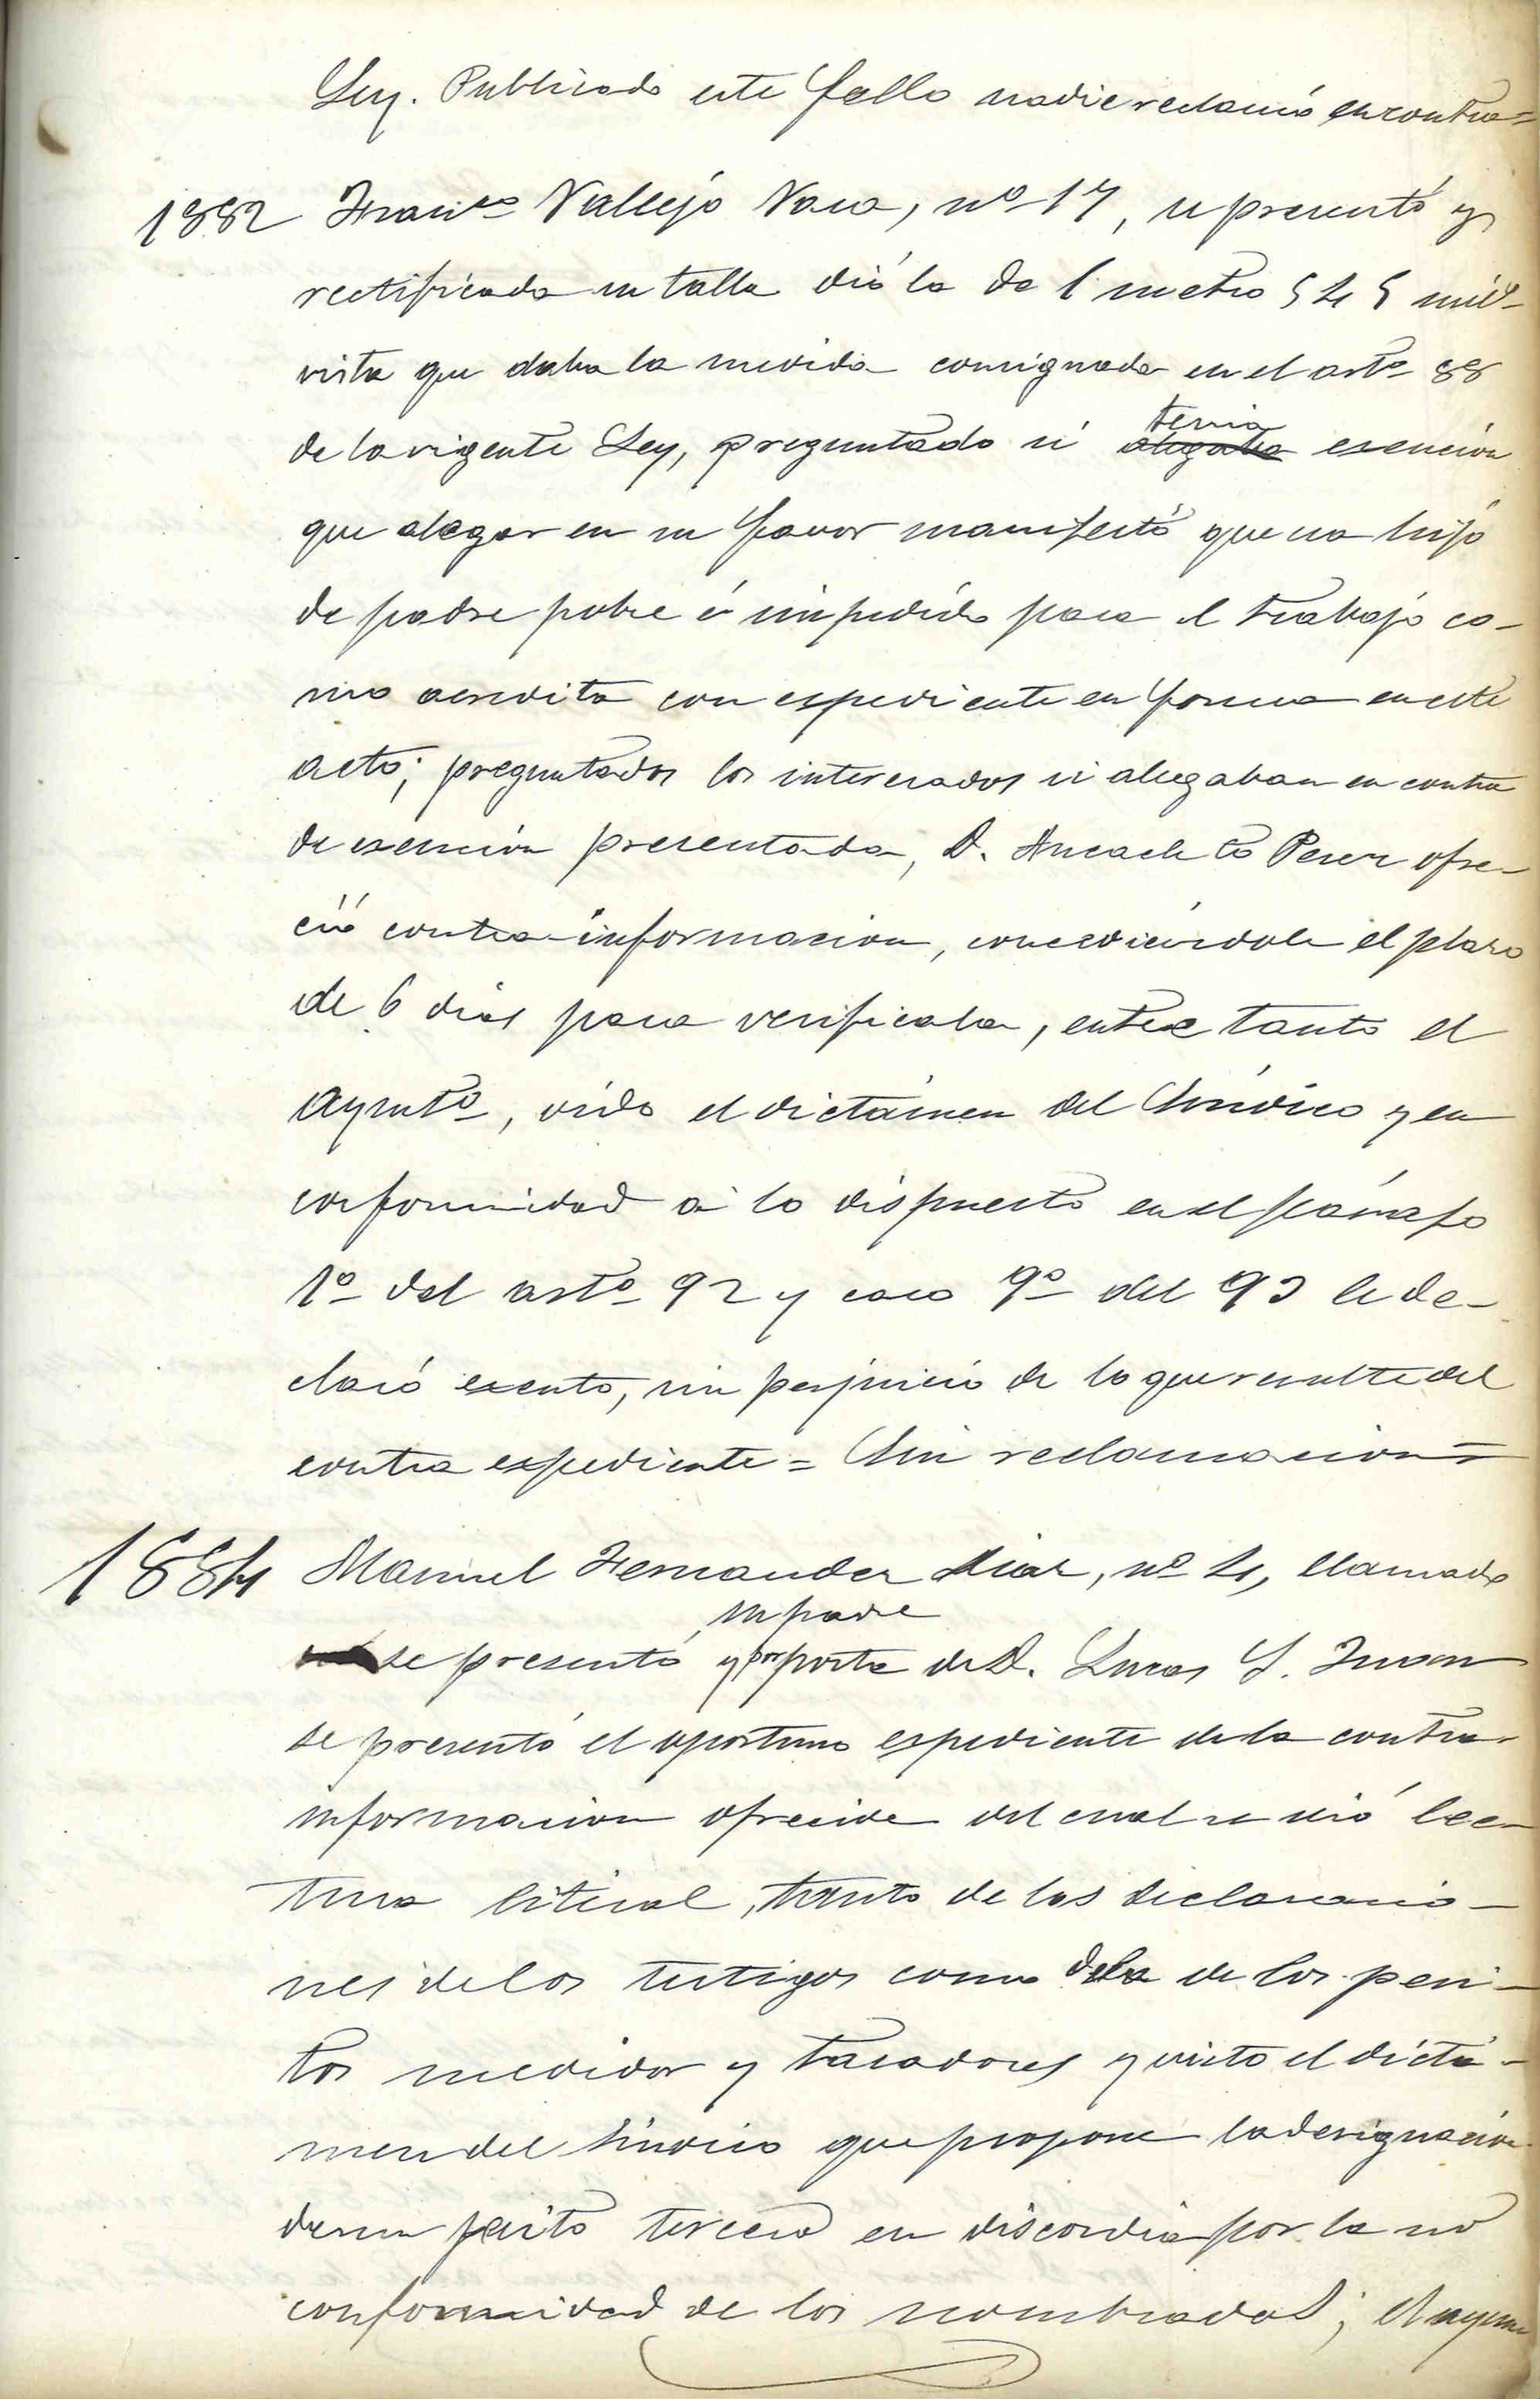 Ley. Publicado este fallo nadie reclamó en contra=
1882 Franco Vallejo Vaca, nº 17, se presentó y
rectificada su talla dió la de 1 metro 545 mil-
vista que daba la medida consignada en el artº 88
de la vigente Ley, preguntado si alegaba tenia esencion
que alegar en su favor manifestó que era hijo
de padre pobre é impedido para el trabajo co-
mo acredita con espediente en forma en este
acto; preguntados los interesados si alegaban en contra
de esencion presentada, D. Anacleto Perez ofre-
ció contra-informacion, concediéndole el plazo
de 6 dias para verificala, entre tanto el
ayuntº, oido el dictámen del Síndico y en
conformidad á lo dispuesto en el párrafo
1º del artº 92 y caso 9º del 93 le de-
claró exento, sin perjuicio de lo que resulte del
contra espediente = Sin reclamacion=
1884 Manuel Fernandez Diaz, nº 4, llamado
se presentó su padre y por parte de D. Lucas S. Juan
se presentó el oportuno espediente de la contra-
informacion ofrecida del cual se dió lec-
tura literal, tanto de las declaracio-
nes de los testigos como de la de los peri-
tos medidor y tasadores y visto el dictá-
men del síndico que propone la designacion
de un perito tercero en discordia por la no
conformidad de los nombrados; el ayun